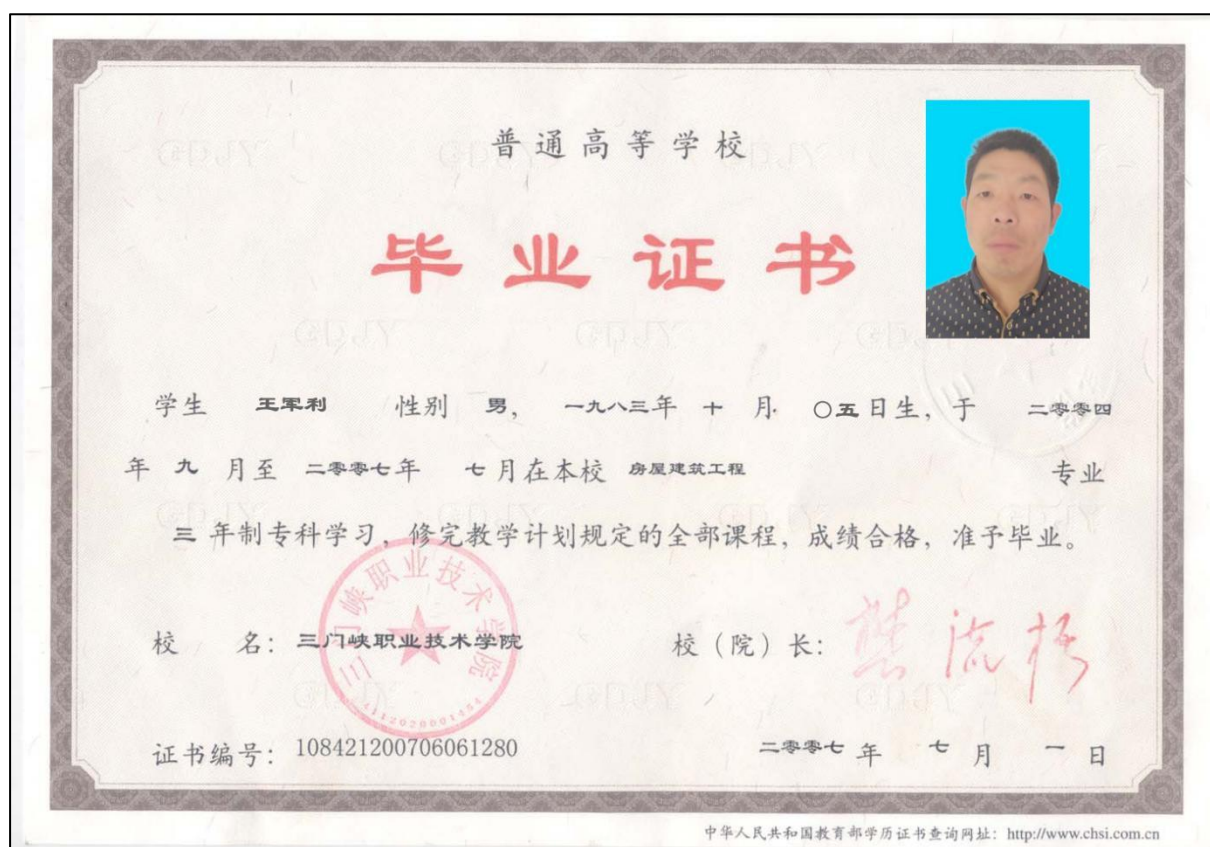 普通高等学校
毕业证书
学生 王军利 性别 男, 一九八三年 十 月 〇五日生, 于 二零零四
年 九 月至 二零零七年 七月在本校 房屋建筑工程 专业
三 年制专科学习, 修完教学计划规定的全部课程, 成绩合格, 准予毕业。
校 名: 三门峡职业技术学院 校(院)长:
三门峡职业技术学院
证书编号: 108421200706061280 二零零七 年 七 月 一 日
中华人民共和国教育部学历证书查询网址: http://www.chsi.com.cn